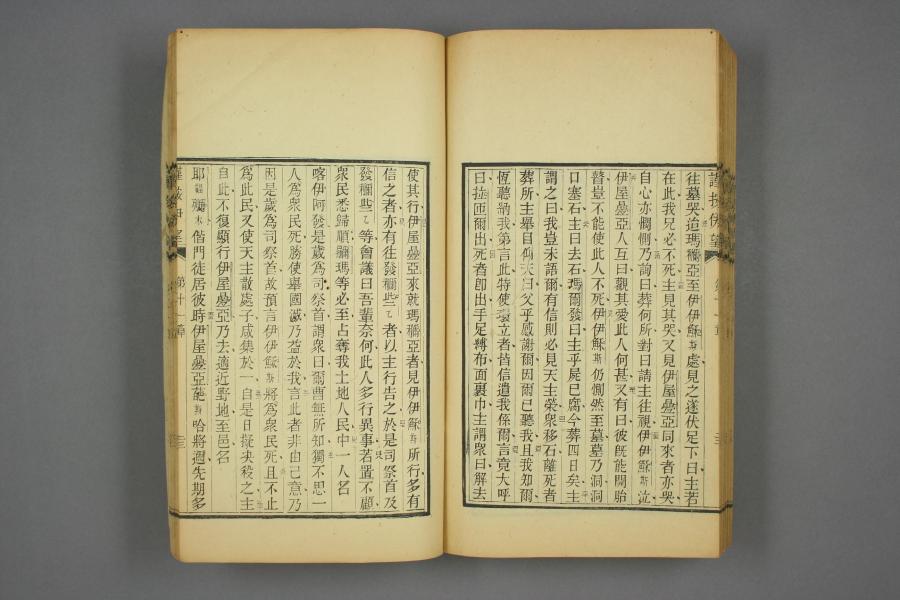 往墓哭迨瑪穪亞至伊伊穌斯處見之遂伏足下曰主若
在此我兄必不死主見其哭又見伊屋疊亞同來者亦哭
自心亦憫惻乃詢曰葬何所對曰請主往視伊伊穌斯泣
伊屋疊亞人互曰觀其愛此人何甚又有曰彼旣能開胎
瞽豈不能使此人不死伊伊穌斯仍惻然至墓墓乃洞洞
口塞石主曰去石瑪爾發曰主乎屍已腐今葬四日矣主
謂之曰我豈未語爾有信則必見天主榮衆移石離死者
葬所主舉目仰天曰父乎感謝爾因爾已聽我且我知爾
恆聽納我第言此特使環立者皆信遣我係爾言竟大呼
曰拉匝爾出死者卽出手足縛布面裹巾主謂衆曰解去
使其行伊屋疊亞來就瑪穪亞者見伊伊穌斯所行多有
信之者亦有往發穪些乙者以主行告之於是司祭首及
發穪些乙等會議曰吾輩奈何此人多行異事若置不顧
衆民悉歸順羅瑪等必至占奪我土地人民中一人名
喀伊阿發是歲爲司祭首謂衆曰爾曹無所知獨不思一
人爲衆民死勝使舉國滅乃益於我言此者非由己意乃
因是歲爲司祭首故預言伊伊穌斯將爲衆民死且不止
爲此民又使天主散處子咸集於一自是日擬決殺之主
自此不復顯行伊屋疊亞乃去適近野地至邑名
偕門徒居彼時伊屋疊亞葩斯哈將週先期多
第十一章